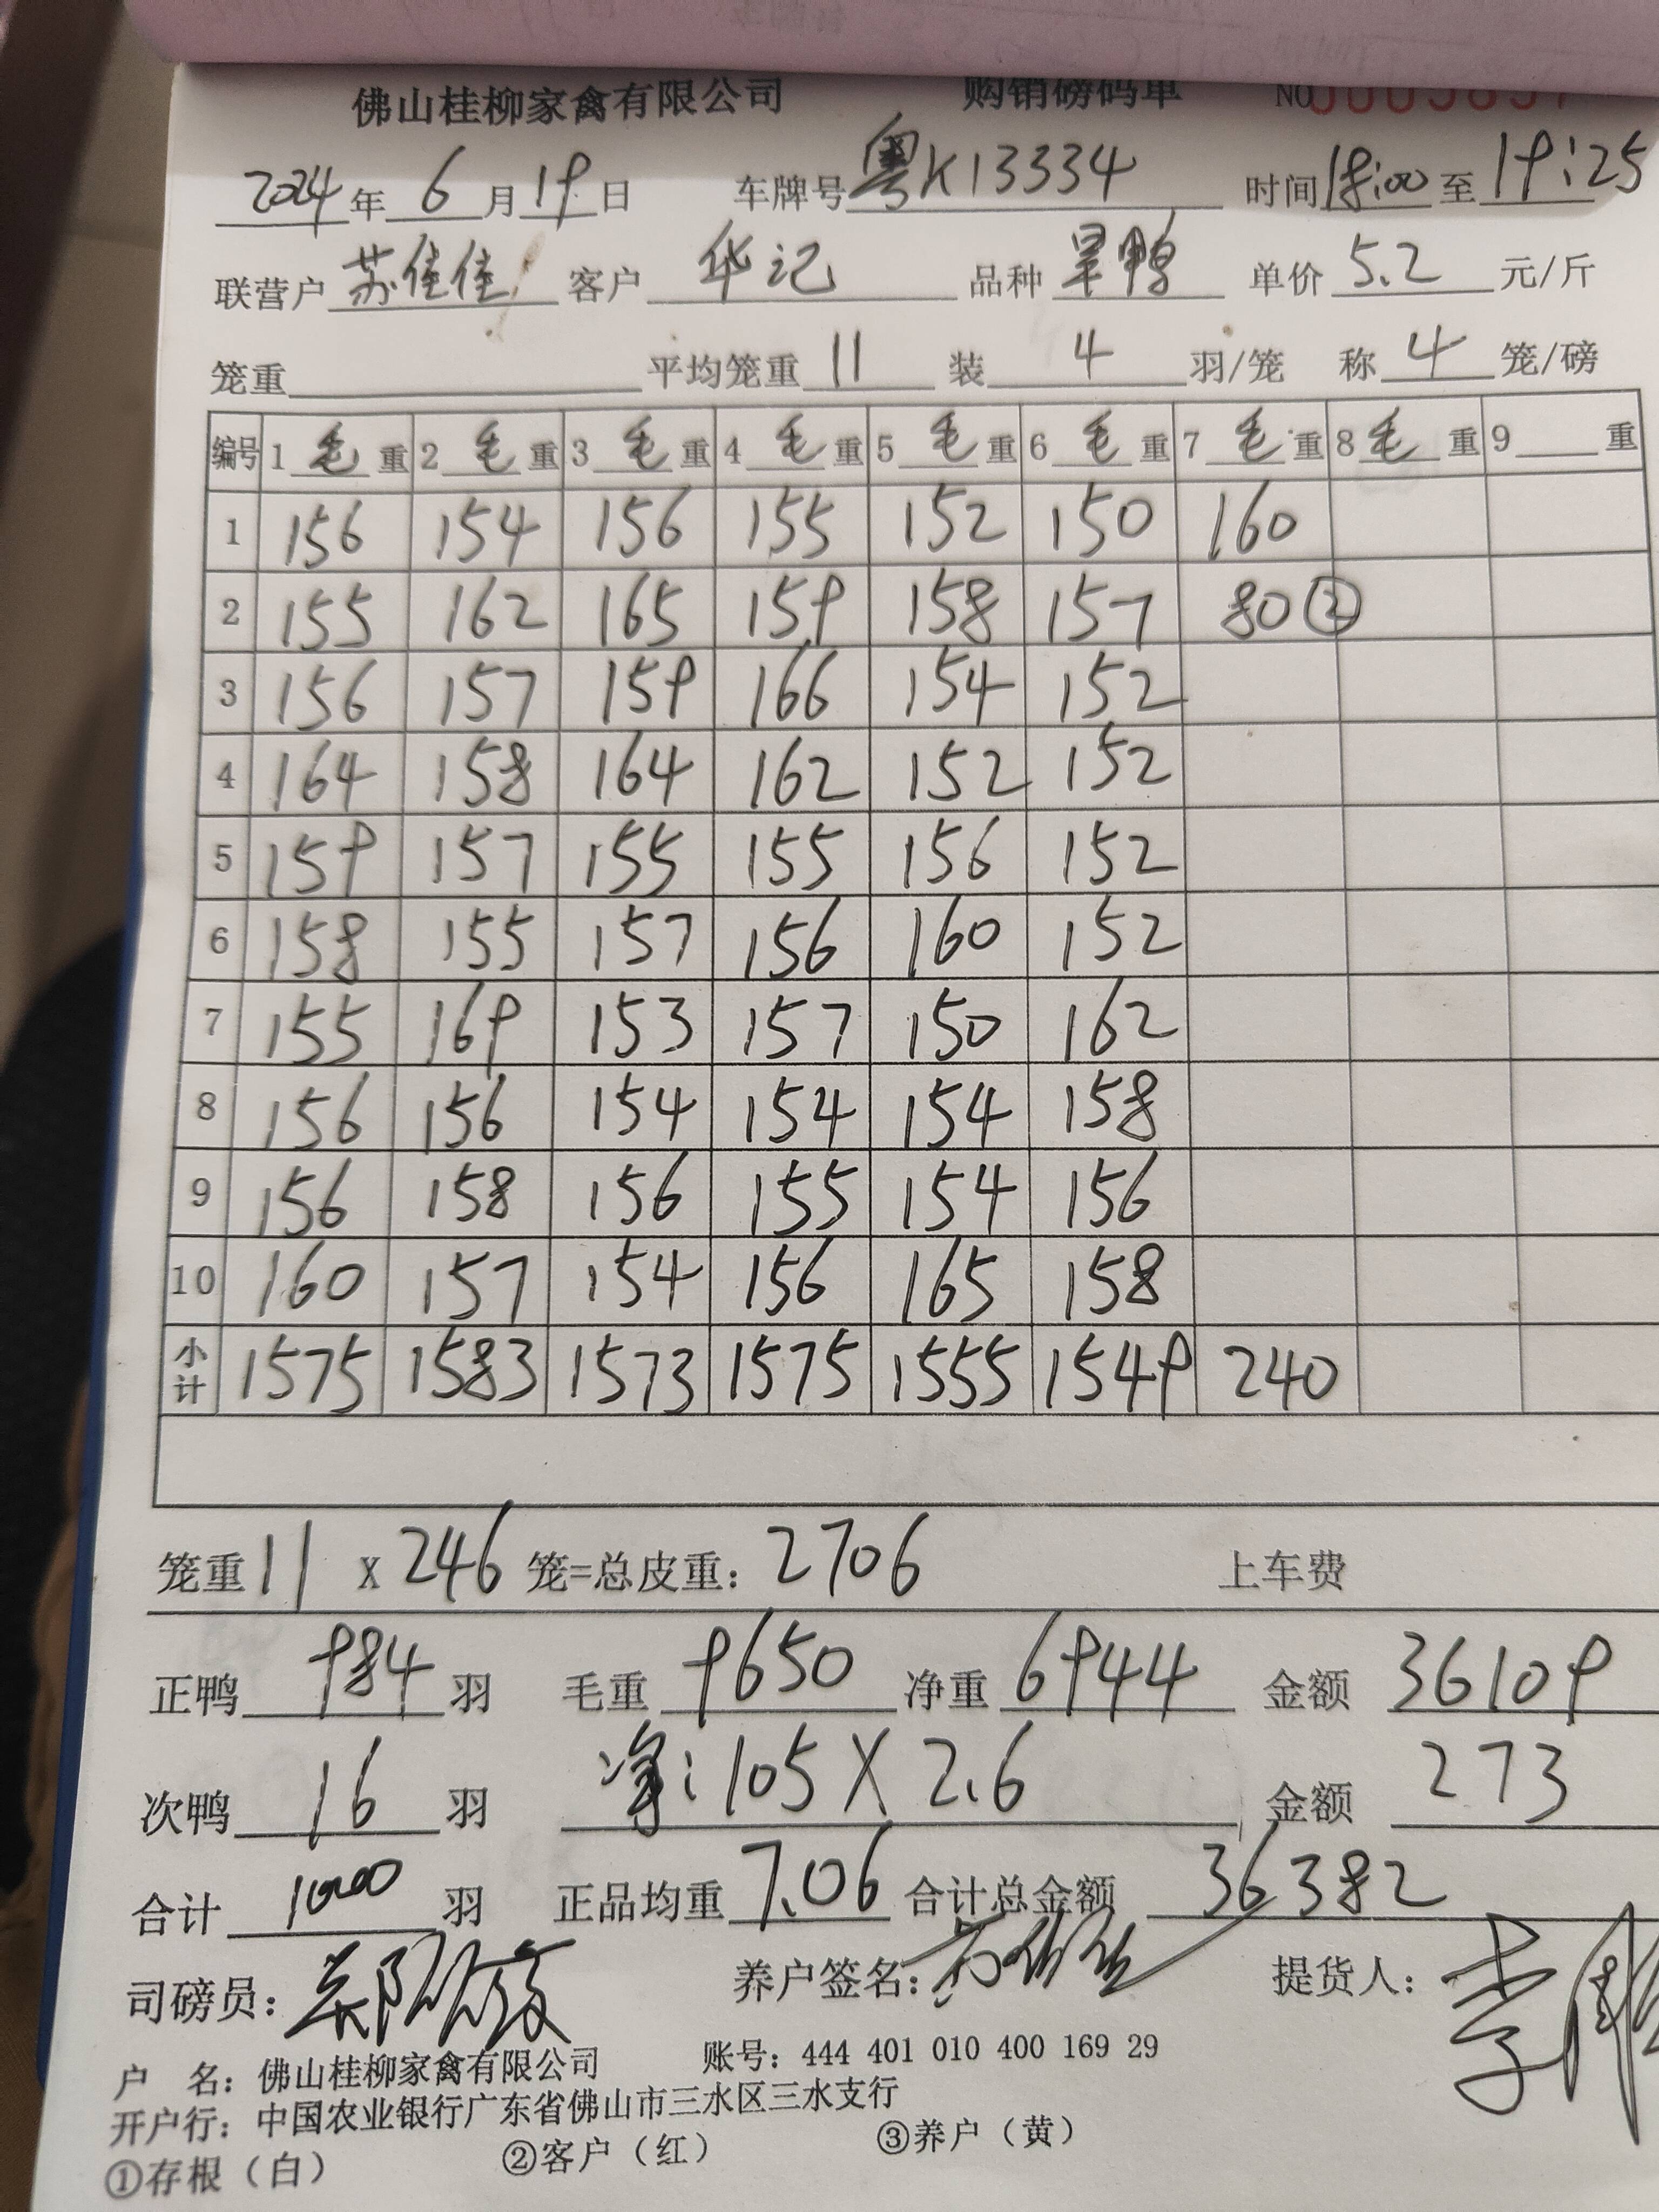 佛山桂柳家禽有限公司 购销磅码单 NO
2024年6月19日 车牌号粤K13334 时间18:00至19:25
联营户苏佳佳 客户华记 品种旱鸭 单价5.2元/斤
笼重 平均笼重11 装4羽/笼 称4笼/磅
编号 1毛重 2毛重 3毛重 4毛重 5毛重 6毛重 7毛重 8毛重 9重
1 156 154 156 155 152 150 160
2 155 162 165 159 158 157 80②
3 156 157 159 166 154 152
4 164 158 164 162 152 152
5 159 157 155 155 156 152
6 158 155 157 156 160 152
7 155 169 153 157 150 162
8 156 156 154 154 154 158
9 156 158 156 155 154 156
10 160 157 154 156 165 158
小计 1575 1583 1573 1575 1555 1549 240
笼重11 X 246笼=总皮重：2706 上车费
正鸭984羽 毛重9650 净重6944 金额36109
次鸭16羽 净:105X2.6 金额273
合计1000羽 正品均重7.06 合计总金额36382
司磅员： 养户签名：苏佳佳 提货人：李
户 名：佛山桂柳家禽有限公司 账号：444 401 010 400 169 29
开户行：中国农业银行广东省佛山市三水区三水支行
①存根（白） ②客户（红） ③养户（黄）